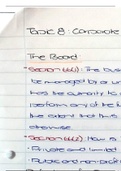 Topic 8: Corporate
The Board
Section 66(1): The bus
be managed by or un
has the authority to
perform any of the
extent that
otherwise
Section 66(2): How is
Private and
Public and non-profit